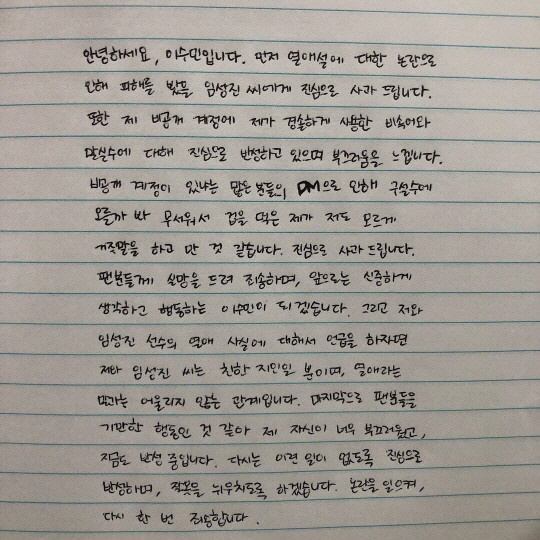 안녕하세요, 이수민입니다. 먼저 열애설에 대한 논란으로
인해 피해를 받을 임성진 씨에게 진심으로 사과 드립니다.
또한 제 비공개 계정에 제가 경솔하게 사용한 비속어와
말실수에 대해 진심으로 반성하고 있으며 부끄러움을 느낍니다.
비공개 계정이 있냐는 많은 분들의 DM으로 인해 구설수에
오를까 봐 무서워서 겁을 먹은 제가 저도 모르게
거짓말을 하고 만 것 같습니다. 진심으로 사과 드립니다.
팬분들께 실망을 드려 죄송하며, 앞으로는 신중하게
생각하고 행동하는 이수민이 되겠습니다. 그리고 저와
임성진 선수의 열애 사실에 대해서 언급을 하자면
저와 임성진 씨는 친한 지인일 뿐이며, 열애라는
말과는 어울리지 않는 관계입니다. 마지막으로 팬분들을
기만한 행동인 것 같아 제 자신이 너무 부끄러웠고,
지금도 반성 중입니다. 다시는 이런 일이 없도록 진심으로
반성하며, 잘못을 뉘우치도록 하겠습니다. 논란을 일으켜,
다시 한 번 죄송합니다.